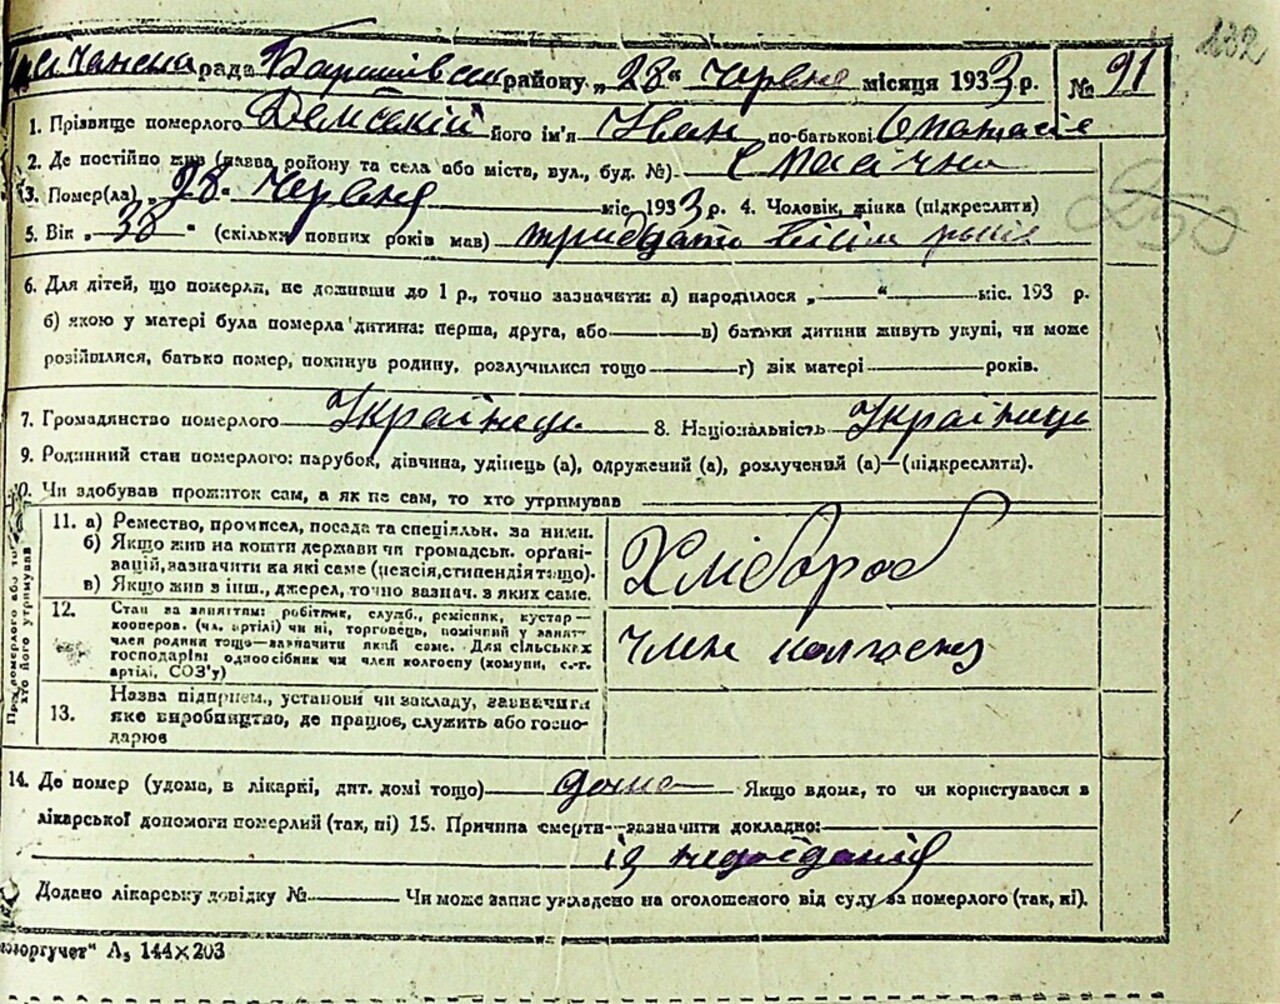 132
рада Баришівськ району „28“ Червня місяця 1933 р. № 91
1. Прізвище померлого Демський його ім'я Іван по-батькові Опанасів
2. Де постійно жив (назва району та села або міста, вул., буд. №) с Пасічна
3. Помер(ла) „28“ Червня міс. 1933 р. 4. Чоловік, жінка (підкреслити)
250
5. Вік „38“ (скільки повних років мав) тридцать вісім років
6. Для дітей, що померли, не доживши до 1 р., точно зазначити: а) народилося „ “ міс. 193 р.
б) якою у матері була померла дитина: перша, друга, або в) батьки дитини живуть укупі, чи може
розійшлися, батько помер, покинув родину, розлучилися тощо г) вік матері років.
7. Громадянство померлого Українець 8. Національність Українець
9. Родинний стан померлого: парубок, дівчина, удівець (а), одружений (а), розлучений (а)—(підкреслити).
10. Чи здобував прожиток сам, а як не сам, то хто утримував
Про померлого або того хто його утримував
11. а) Ремество, промисел, посада та спеціяльн. за ними.
б) Якщо жив на кошти держави чи громадськ. органі-
зацій, зазначити на які саме (пенсія, стипендія тощо).
в) Якщо жив в інш., джерел, точно вазнач. в яких саме.
Хлібороб
12. Стан за заняттям: робітник, служб., ремісник, кустар—
кооперов. (чл. артілі) чи ні, торговець, помічний у занят—
член родини тощо—зазначити який саме. Для сільських
господарів: одноосібник чи член колгоспу (комуни, с.-г.
артілі, СОЗ'у)
член колгоспу
13. Назва підприєм., установи чи закладу, зазначити
яке виробництво, де працює, служить або госпо-
дарює
14. Де помер (удома, в лікарні, дит. домі тощо) дома Якщо вдома, то чи користувався в
лікарської допомоги померлий (так, ні) 15. Причина смерти—зазначити докладно:
із недоїдання
Додано лікарську довідку № Чи може запис укладено на оголошеного від суду за померлого (так, ні).
А₅ 144×203